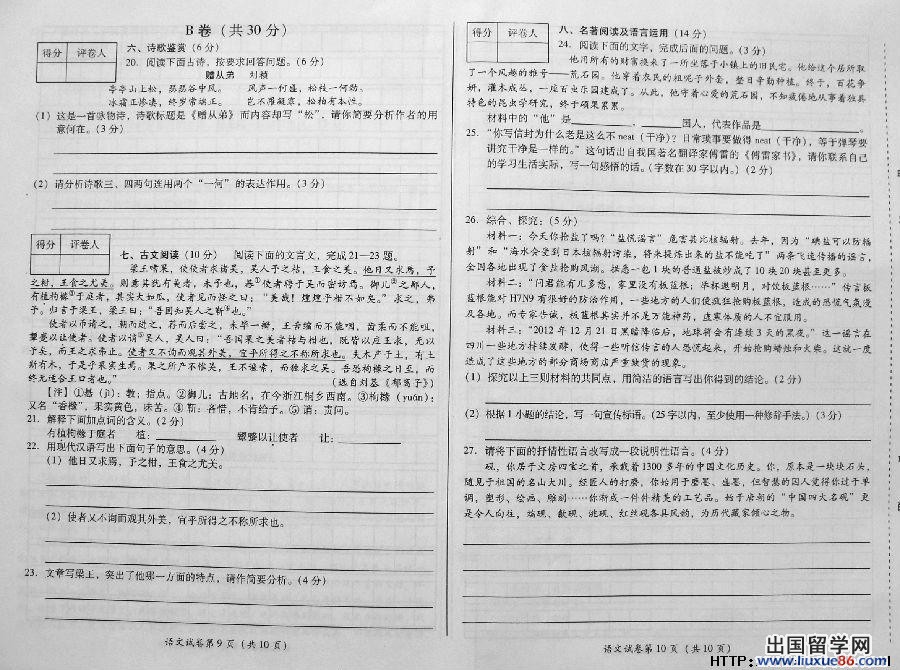 B 卷（共 30 分）
得分 评卷人
六、诗歌鉴赏（6 分）
20. 阅读下面古诗，按要求回答问题。（6 分）
赠从弟 刘桢
亭亭山上松，瑟瑟谷中风。 风声一何盛，松枝一何劲。
冰霜正惨凄，终岁常端正。 岂不罹凝寒，松柏有本性。
（1）这是一首咏物诗，诗歌标题是《赠从弟》而内容却写“松”，请你简要分析作者的用
意何在。（3 分）
（2）请分析诗歌三、四两句连用两个“一何”的表达作用。（3 分）
得分 评卷人
七、古文阅读（10 分） 阅读下面的文言文，完成 21—23 题。
梁王嗜果，使使者求诸吴。吴人予之桔，王食之美。他日又求焉，予
之柑，王食之尤美。则意其犹有美者，未予也，惎①使者聘于吴而密访焉。御儿②之鄙人，
有植枸橼③于庭者，其实大如瓜，使者见而愕之曰：“美哉！煌煌乎柑不如矣。”求之，弗
予。归言于梁王，梁王曰：“吾固知吴人之靳④也。”
使者以币请之，朝而进之，荐而后尝之，未毕一瓣，王舌缩而不能咽，齿柔而不能咀，
颦蹙以让使者。使者以诮⑤吴人，吴人曰：“吾国果之美者桔与柑也，既皆以应王求，无以
予矣，而王之求弗止。使者又不询而观其外美，宜乎所得之不称所求也。夫木产于土，有土
斯有木，于是乎果实生焉。果之所产不惟吴，王不遍索，而独求之吴。吾恐枸橼之日至，而
终无适合王口者也。” （选自刘基《郁离子》）
【注】①惎（jì）：教；指点。②御儿：古地名，在今浙江桐乡西南。③枸橼（yuán）：
又名“香橼”，果实黄色，味苦。④靳：吝惜，不肯给予。⑤诮：责问。
21. 解释下面加点词的含义。（2 分）
有植枸橼于庭者 植： 颦蹙以让使者 让：
22. 用现代汉语写出下面句子的意思。（4 分）
（1）他日又求焉，予之柑，王食之尤美。
（2）使者又不询而观其外美，宜乎所得之不称所求也。
23. 文章写梁王，突出了他哪一方面的特点，请作简要分析。（4 分）
语文试卷第 9 页（共 10 页）
得分 评卷人
八、名著阅读及语言运用（14 分）
24. 阅读下面的文字，完成后面的问题。（3 分）
他用所有的财富换来了一所坐落于小镇上的旧民宅。他给这个居所取
了一个风趣的雅号——荒石园。他穿着农民的粗呢子外套，整日辛勤种植。终于，百花争
妍，灌木成丛，一座百虫乐园建成了。从此，他守着心爱的荒石园，不知疲倦地从事着独具
特色的昆虫学研究，终于硕果累累。
材料中的“他”是 ， 国人，代表作品是 。
25. “你写信封为什么老是这么不 neat（干净）？日常琐事要做得 neat（干净），等于弹琴要
讲究干净是一样的。”这句话出自我国著名翻译家傅雷的《傅雷家书》，请你联系自己
的学习生活实际，写一句感悟的话。（字数在 30 字以内。）（2 分）
26. 综合、探究：（5 分）
材料一：今天你抢盐了吗？“盐慌谣言”危害甚比核辐射。去年，因为“碘盐可以防辐
射”和“海水会受到日本核辐射污染，将来提炼出来的盐不能吃了”两条飞速传播的谣言，
全国各地出现了食盐抢购风潮。损恶一包 1 块的普通盐被炒成了 10 块 20 块甚至更多。
材料二：“问君能有几多愁，家里没有板蓝根；举杯邀明月，对饮板蓝根……”传言板
蓝根能对 H7N9 有很好的防治作用，一些地方的人们便疯狂抢购板蓝根，造成的恐慌气氛漫
及各地。而专家告诫，板蓝根其实并不是万能神药，虚寒体质的人不宜服用。
材料三：“2012 年 12 月 21 日黑暗降临后，地球将会有连续 3 天的黑夜。”这一谣言在
四川一些地方持续发酵，使得一些听信传言的人恐慌起来，开始抢购蜡烛和火柴。这就一度
造成了这些地方的部分商场商店严重缺货的现象。
（1）探究以上三则材料的共同点，用简洁的语言写出你得到的结论。（2 分）
（2）根据 1 小题的结论，写一句宣传标语。（25 字以内，至少使用一种修辞手法。）（3 分）
27. 请将下面的抒情性语言改写成一段说明性语言。（4 分）
砚，你居于文房四宝之首，承载着 1300 多年的中国文化历史。你，原本是一块块石头，
随见于祖国的名山大川。经匠人的打磨，你始用于磨墨、盛墨，但智慧的国人觉得你过于单
调，塑形、绘画、雕刻……你渐成一件件精美的工艺品。始于唐朝的“中国四大名砚”更
是令人向往，端砚、歙砚、洮砚、红丝砚各具风韵，为历代藏家倾心之物。
语文试卷第 10 页（共 10 页）
出国留学网
HTTP: www.liuxue86.com